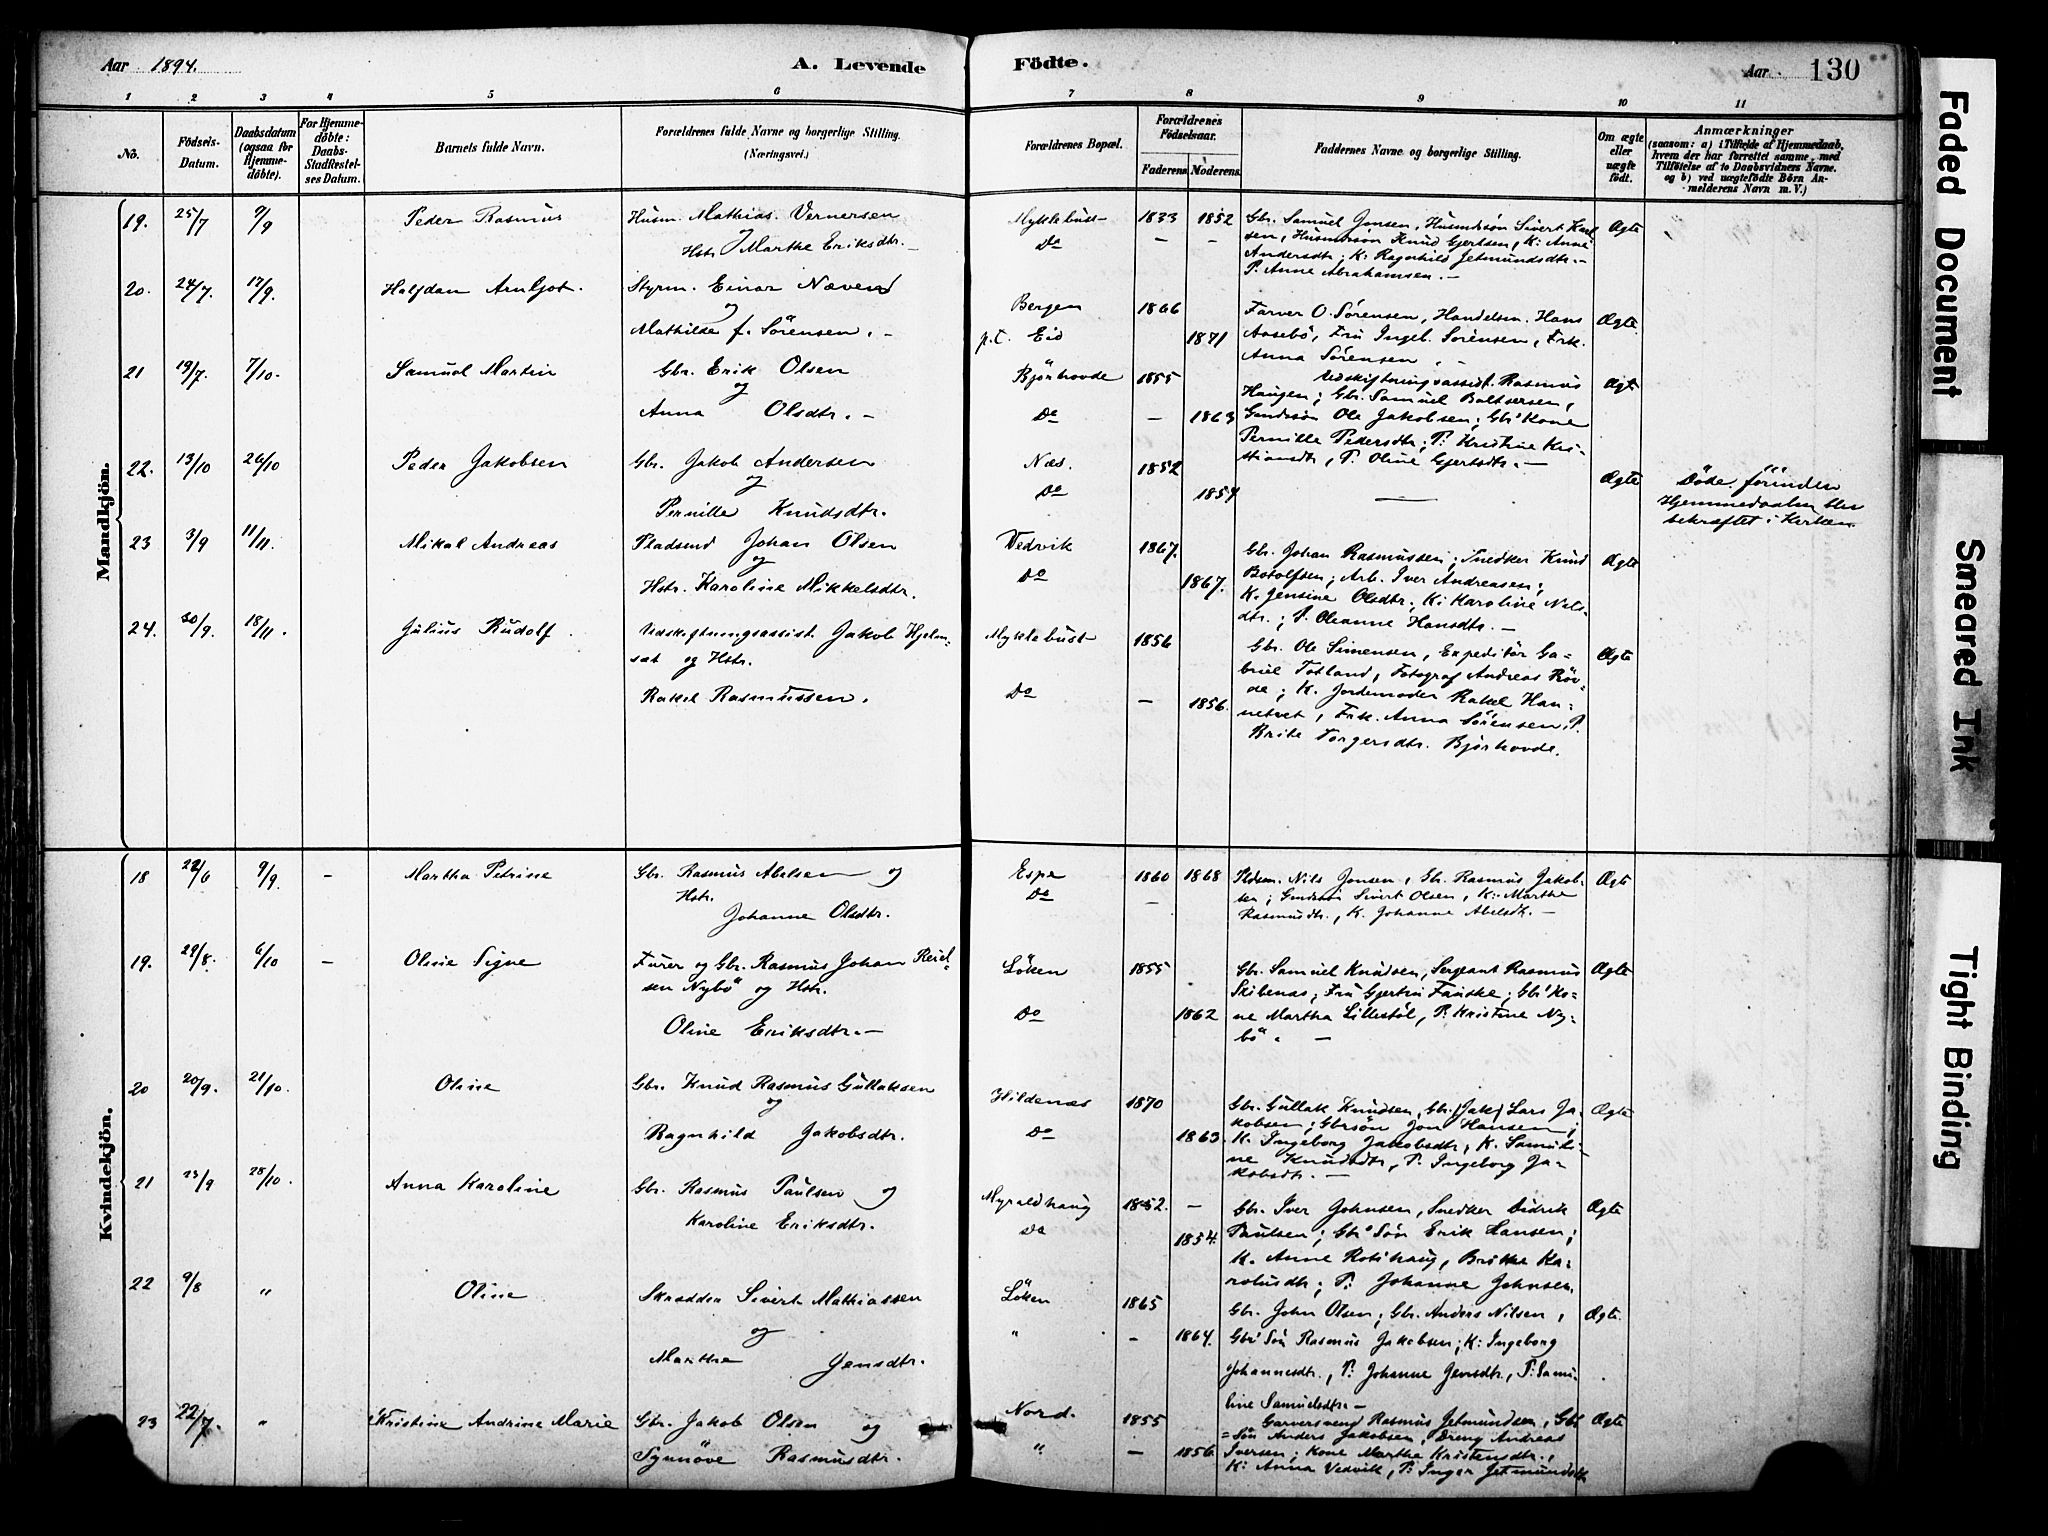 Aar 1894.
A. Levende Födte.
Aar 130
1 2 3 4 5 6 7 8 9 10 11
No.
Födsels-Datum.
Daabsdatum (ogsaa for Hjemmedöbte).
For Hjemmedöbte: Daabs-Stadfæstelses Datum.
Barnets fulde Navn.
Forældrenes fulde Navne og borgerlige Stilling.
(Næringsvei.)
Forældrenes Bopæl.
Forældrenes Födselsaar.
Faderens Moderens
Faddernes Navne og borgerlige Stilling.
Om ægte eller uægte födt.
Anmærkninger
(saasom: a) i Tilfælde af Hjemmedaab,
hvem der har forrettet samme, med
Tilföielse af to Daabsvidners Navne.
og b) ved uægtefödte Börn Anmelderens Navn m. V.)
Mandkjön.
19. 25/7 9/9 Peder Rasmus Husm. Mathias Vernersen
Hstr. Marthe Eriksdtr. -
Myklebust 1833 1852
Do - -
Gbr. Samuel Jonsen, Husmdsön Sivert Karl
sen, Husmdssön Knud Gjertsen, K: Anne
Andersdtr; K: Ragnhild Jetmundsdtr. -
P. Anne Abrahamsen. -
Ægte
20. 24/7. 17/9. Halfdan Arnljot. Styrm. Einar Nævend
og
Mathilde f. Sörensen. -
Bergen 1866
p.t. Eid 1871
Farver O. Sörensen, Handelsm. Hans
Aasebö, Fru Ingeb. Sörensen, Frk.
Anna Sörensen. -
Ægte
21 19/7. 7/10. Samuel Martin Gbr. Erik Olsen
og
Anna Olsdtr. -
Bjørhovde 1855
Do - 1863
Udskiftningsassist. Rasmus
Haugen; Gbr. Samuel Baltsersen,
Gmdssön Ole Jakobsen; Gbr' Kone
Pernille Pedersdtr; P: Kristine Kri-
stiansdtr, P. Oline Gjertsdtr. -
Ægte
22. 13/10 26/10 Peder Jakobsen Gbr. Jakob Andersen
og
Pernille Knudsdtr.
Næs. 1852
Do 1854
Ægte
Döde förinden
Hjemmedaaben blev
bekræftet i Kirken.
23 3/9 11/11. Mikal Andreas Pladsmd Johan Olsen
og
Hstr. Karoline Mikkelsdtr.
Vedvik 1867.
Do 1867.
Gbr. Johan Rasmussen; Snedker Knud
Botolfsen; Arb. Iver Andreasen;
K. Jensine Olsdtr; K: Karoline Nils-
dtr.; P. Oleanne Hansdtr. -
Ægte
24. 20/9. 18/11. Julius Rudolf. Udskiftningsassist. Jakob Hjelm-
sæt og Hstr.
Rakel Rasmussen.
Myklebust 1856
Do - 1856.
Gbr. Ole Simensen, Expeditör Ga-
briel Totland, Fotograf Andreas Röv-
de; K. Jordemoder Rakel Han-
netvet, Frk. Anna Sörensen, P.
Brite Torgersdtr. Bjørhovde.
Ægte
Kvindekjön.
18 22/6 9/9. - Martha Petrine Gbr. Rasmus Abelsen og
Hstr.
Johanne Olsdtr.
Espe 1860 1868
Do -
Pladsm. Nils Jonsen, Gbr. Rasmus Jakob-
sen; Gmdssön Sivert Olsen, K: Marthe
Rasmusdtr., K. Johanne Abelsdtr. -
Ægte
19. 29/8. 6/10 - Oline Signe Furer og Gbr. Rasmus Johan Reiel-
sen Nybö og Hstr.
Oline Eriksdtr. -
Löken 1855
Do 1862
Gbr. Samuel Knudsen, Sergeant Rasmus
Skibenæs; Fru Gjertru Fauske; Gbr' Ko-
ne Martha Lillestöl, P: Kristine Ny-
bö. -
Ægte
20 20/9. 21/10. Oline Gbr. Knud Rasmus Gullaksen
og
Ragnhild Jakobsdtr.
Hildenæs 1870
Do 1863
Gbr. Gullak Knudsen, Gbr. (Jak) Lars Ja-
kobsen; Gbrsön Jon Hansen;
K. Ingeborg Jakobsdtr, K. Samuli-
ne Knudsdtr, P: Ingeborg Ja-
kobsdtr. -
Ægte
21 23/9 28/10. Anna Karoline Gbr. Rasmus Paulsen og
Karoline Eriksdtr.
Myraldhaug 1852. -
Do 1854.
Gbr. Iver Johnsen, Snedker Didrik
Paulsen; Gbr' Sön Erik Hansen;
K. Anne Rotihaug, Brithe Ka-
rolusdtr; P: Johanne Johnsen.
Ægte
22 9/8 " Oline Skrædder Sivert Mathiassen
og
Marthe Jensdtr.
Löken 1865
" - 1864.
Gbr. John Olsen; Gbr. Anders Nilsen,
Gbr' Sön Rasmus Jakobsen; K: Ingeborg
Johannesdtr, P: Johanne Jensdtr, P: Samu-
line Samuelsdtr. -
Ægte.
23 22/7. " Kristine Andrine Marie Gbr. Jakob Olsen og
Synnöve Rasmusdtr.
Nord. 1855
" - 1856
Garversvend Rasmus Jetmundsen, Gbr
=Sön Anders Jakobsen, Dreng Andreas
Iversen; Kone Marthe Kristensdtr.,
K: Anna Vedvik, P: Inger Jetmundsdtr
Ægte
Faded Document
Smeared Ink
Tight Binding